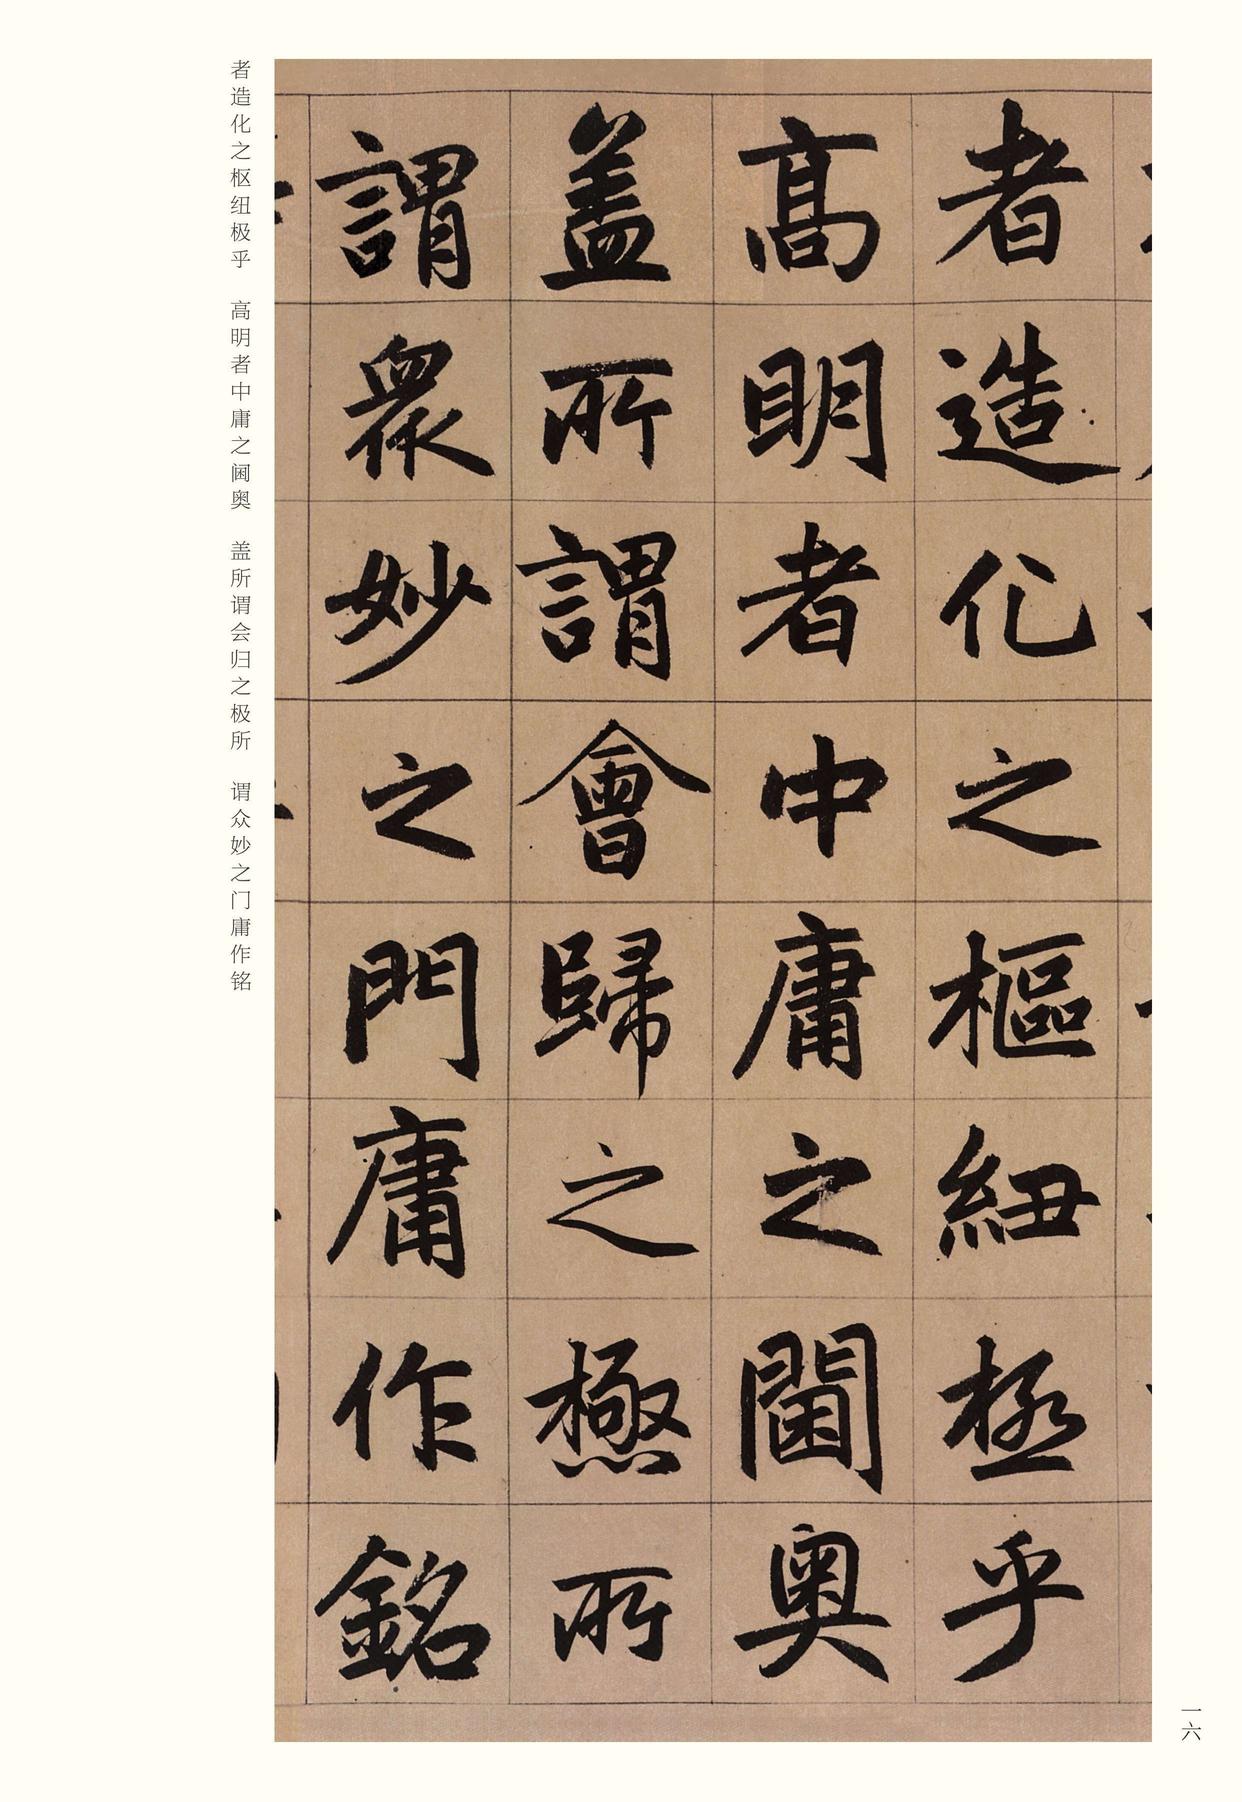 者造化之樞紐極乎
高明者中庸之閫奧
盖所謂會歸之極所
謂衆妙之門庸作銘
者造化之枢纽极乎　高明者中庸之阃奥　盖所谓会归之极所　谓众妙之门庸作铭
一六